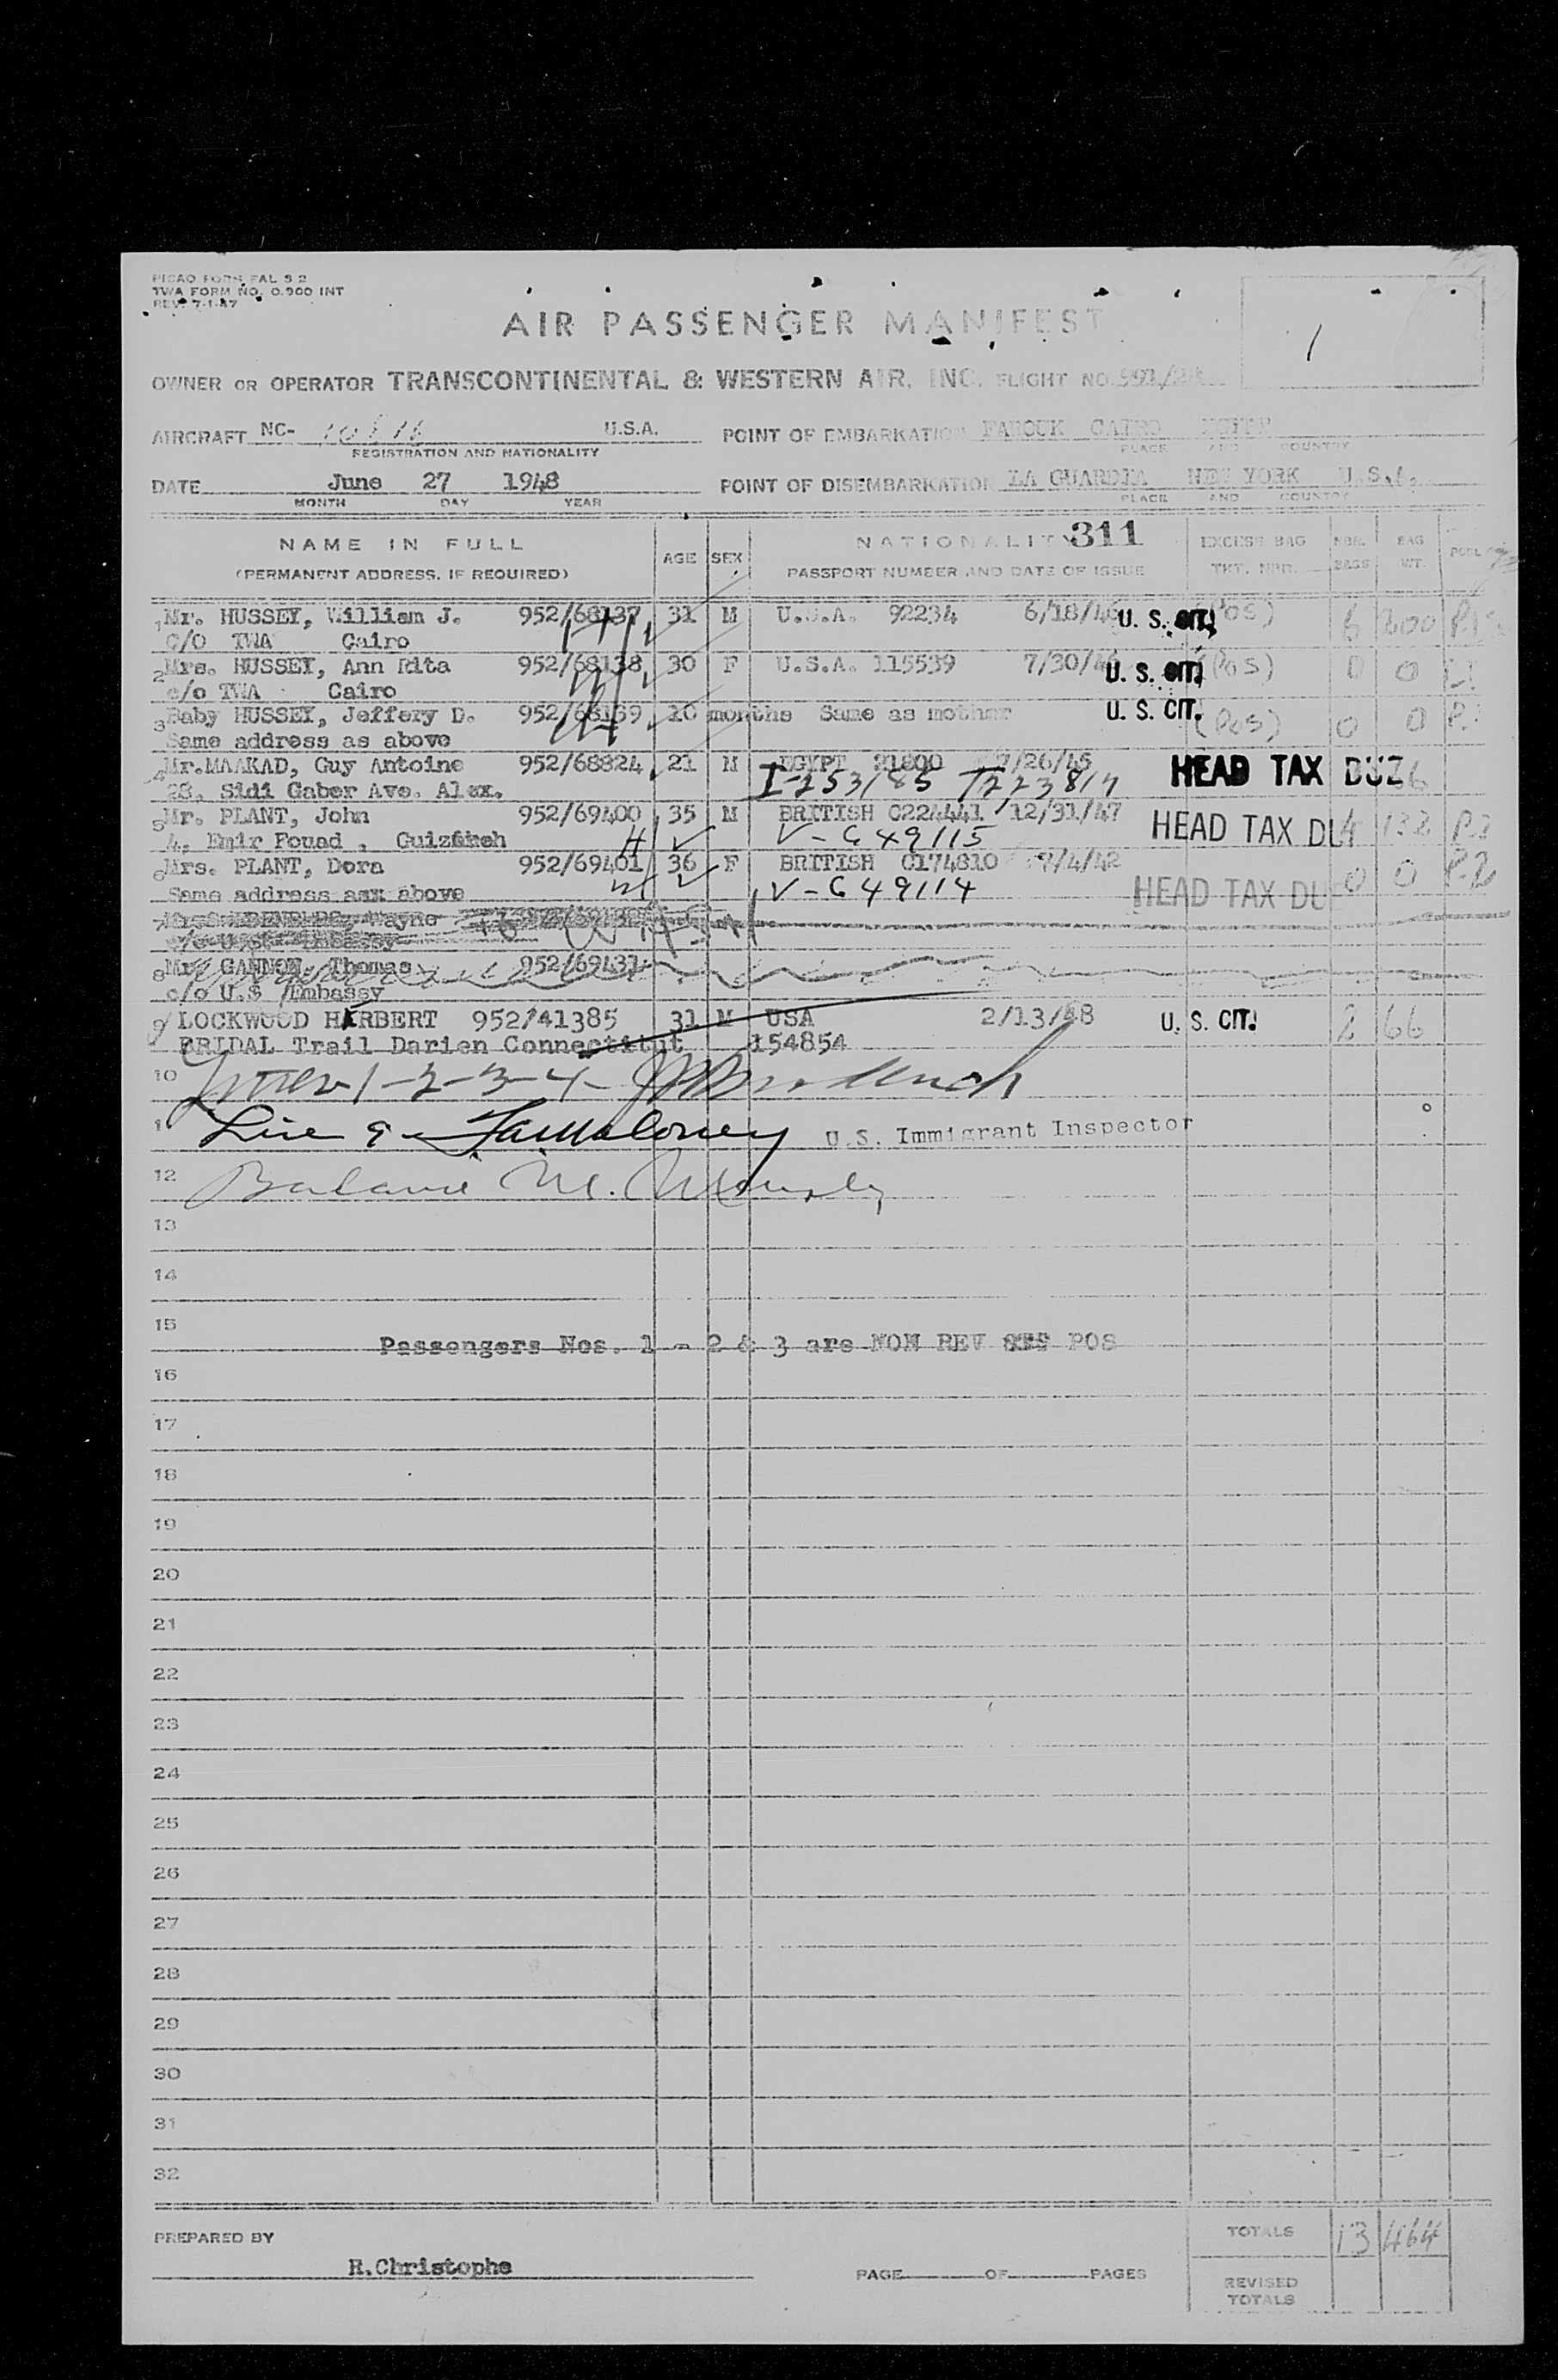 PICAO FORM FAL S 2
TWA FORM NO. 0.900 INT
REV. 7-1-47
AIR PASSENGER MANIFEST
1
OWNER OR OPERATOR TRANSCONTINENTAL & WESTERN AIR, INC. FLIGHT NO.
AIRCRAFT NC- U.S.A. POINT OF EMBARKATION FAROUK CAIRO EGYPT
REGISTRATION AND NATIONALITY PLACE AND COUNTRY
DATE June 27 1948 POINT OF DISEMBARKATION LA GUARDIA NEW YORK U.S.A.
MONTH DAY YEAR PLACE AND COUNTRY
NAME IN FULL AGE SEX NATIONALITY 311 EXCESS BAG NBR. BAG
(PERMANENT ADDRESS, IF REQUIRED) PASSPORT NUMBER AND DATE OF ISSUE TKT. NBR. BAGS WT.
1 Mr. HUSSEY, William J. 952/68137 31 M U.S.A. 92234 6/18/46 U. S. CIT. (Pos) 6 200
C/O TWA Cairo
2 Mrs. HUSSEY, Ann Rita 952/68138 30 F U.S.A. 115539 7/30/46 U. S. CIT. (Pos) 0 0
c/o TWA Cairo
3 Baby HUSSEY, Jeffery D. 952/68139 10 months Same as mother U. S. CIT. (Pos) 0 0
Same address as above
4 Mr.MAAKAD, Guy Antoine 952/68824 21 M EGYPT 21800 7/26/45 HEAD TAX DUE
28, Sidi Gaber Ave. Alex. I-253185
5 Mr. PLANT, John 952/69400 35 M BRITISH C224441 12/31/47 HEAD TAX DU 4 132
4, Emir Fouad , H V-649115
6 Mrs. PLANT, Dora 952/69401 36 F BRITISH C174810 7/4/42 HEAD TAX DUE 0 0
Same address as above W V-649114
7 Wayne
c/o U.S. Embassy
8 Mr. GANNON, Thomas 952/69431
c/o U.S Embassy
9 LOCKWOOD HERBERT 952/41385 31 M USA 2/13/48 U. S. CIT. 2 66
BRIDAL Trail Darien Connectitut 154854
10 1-2-3-4-
11 Line 9 - U.S. Immigrant Inspector
12 Balance M.
13
14
15
Passengers Nos. 1 - 2 & 3 are NON REV POS
16
17
18
19
20
21
22
23
24
25
26
27
28
29
30
31
32
PREPARED BY TOTALS 13 464
R.Christophe PAGE OF PAGES
REVISED
TOTALS